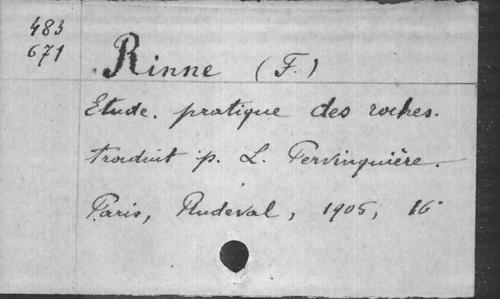 483
671
Rinne (F.)
Etude. pratique des roches.
traduit p. L. Pervinquière.
Paris, Rudeval, 1905, 16